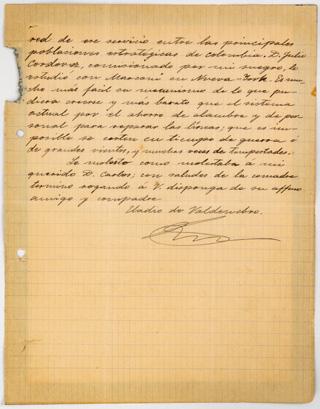 red de ese servicio entre las principales
poblaciones estratégicas de Colombia. D. Julio
Cordovez, comisionado por mi suegro, lo
estudió con Marconi en Nueva York. Es mu-
cho más fácil su mecanismo de lo que pu-
diera creerse y más barato que el sistema
actual por el ahorro de alambre y de per-
sonal para reparar las líneas; que es im-
posible se corten en tiempo de guerra ó
de grandes vientos, y muchas veces de tempestades.
Le molesto como molestaba á mi
querido D. Carlos; con saludos de la comadre
termino rogando á V. disponga de su affmo
amigo y compadre
Eladio de Valdenebro.